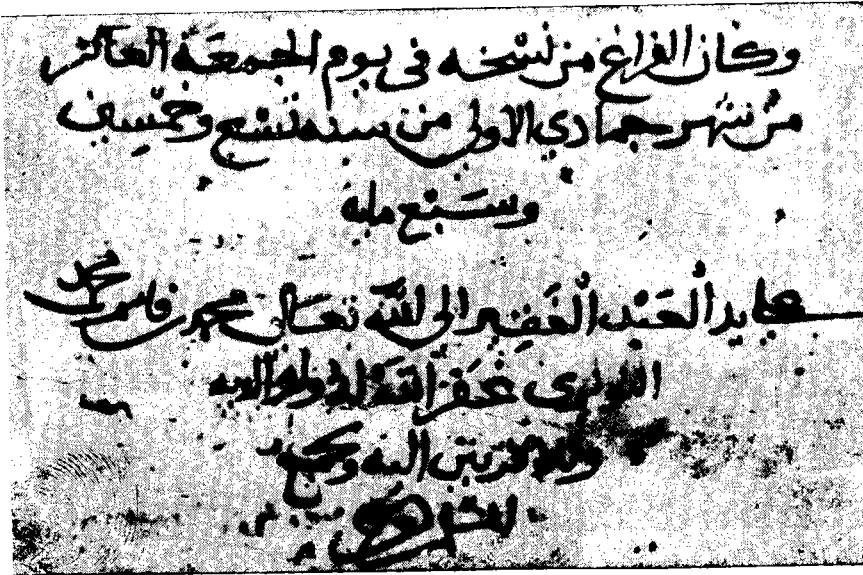 وكان الفراغ من نسخه فى يوم الجمعة العاشر
من شهر جمادي الاولى من سنه تسع وخمسين
وسبع مايه
على يد العبد الفقير الى الله تعالى محمد بن قاسم بن محمد
غفر الله له ولوالديه
اليه ولجميع